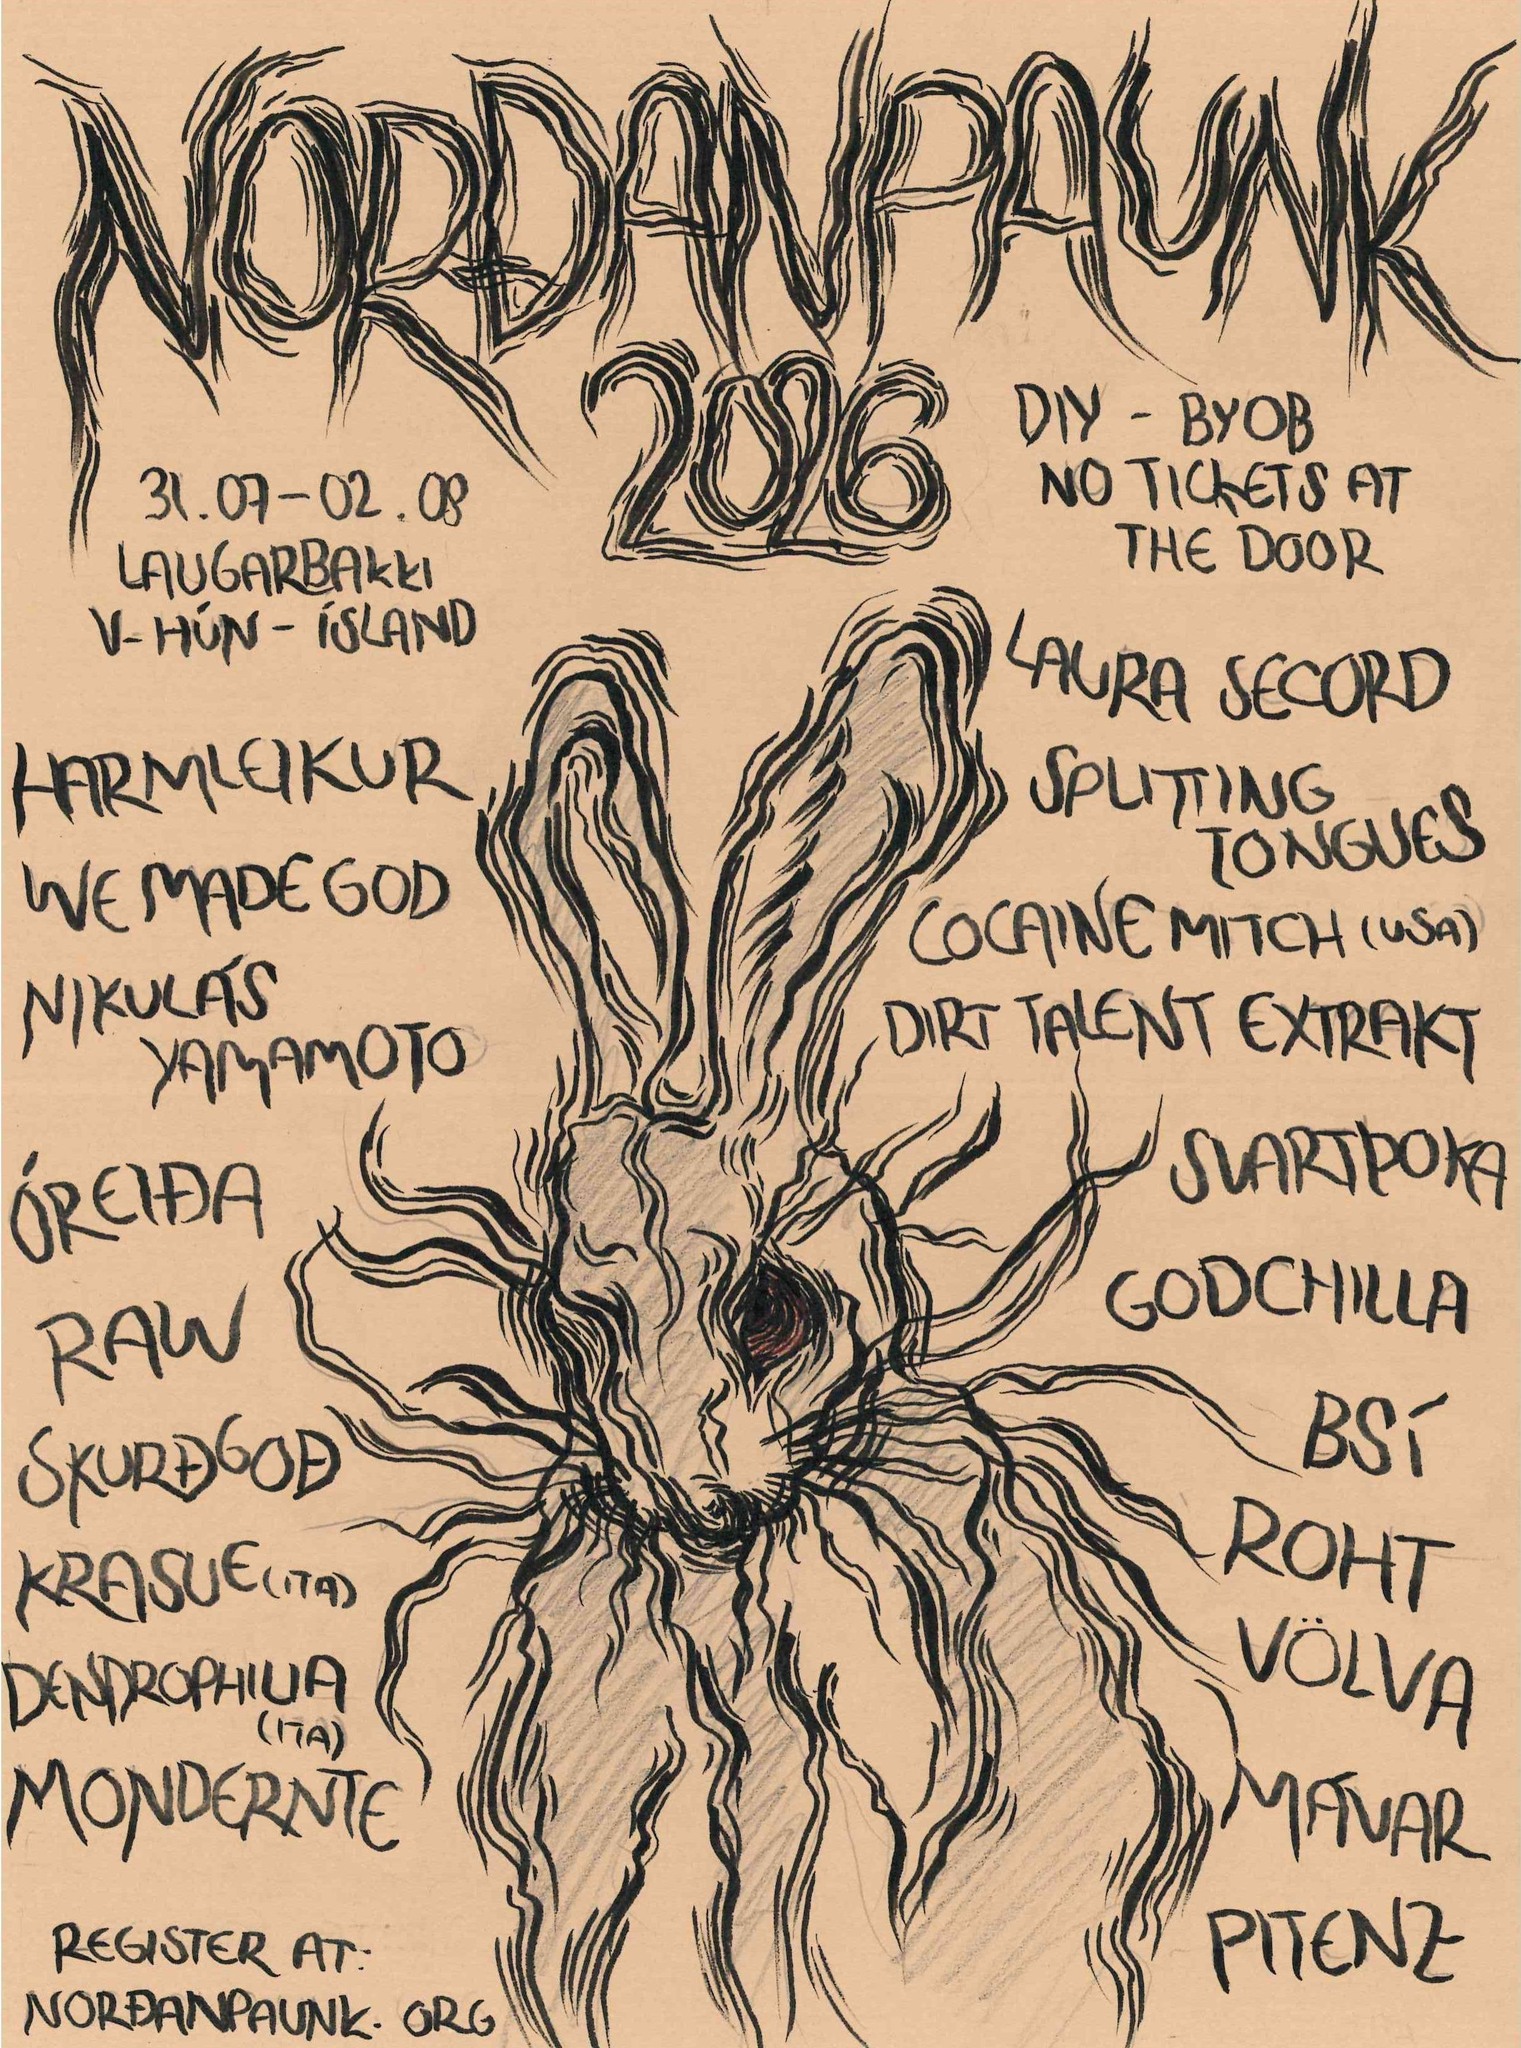 NORÐANPAUNK
2026
31.07-02.08
LAUGARBAKKI
V-HÚN-ÍSLAND
DIY - BYOB
NO TICKETS AT
THE DOOR
HARMLEIKUR
WE MADE GOD
NIKULÁS
YAMAMOTO
ÓREIÐA
RAW
SKURÐGOÐ
KRASUE (ITA)
DENDROPHILIA
(ITA)
MONDERNTE
LAURA SECORD
SPLITTING
TONGUES
COCAINE MITCH (USA)
DIRT TALENT EXTRAKT
SVARTÞOKA
GODCHILLA
BSÍ
ROHT
VÖLVA
MÁVAR
PITENZ
REGISTER AT:
NORÐANPAUNK.ORG